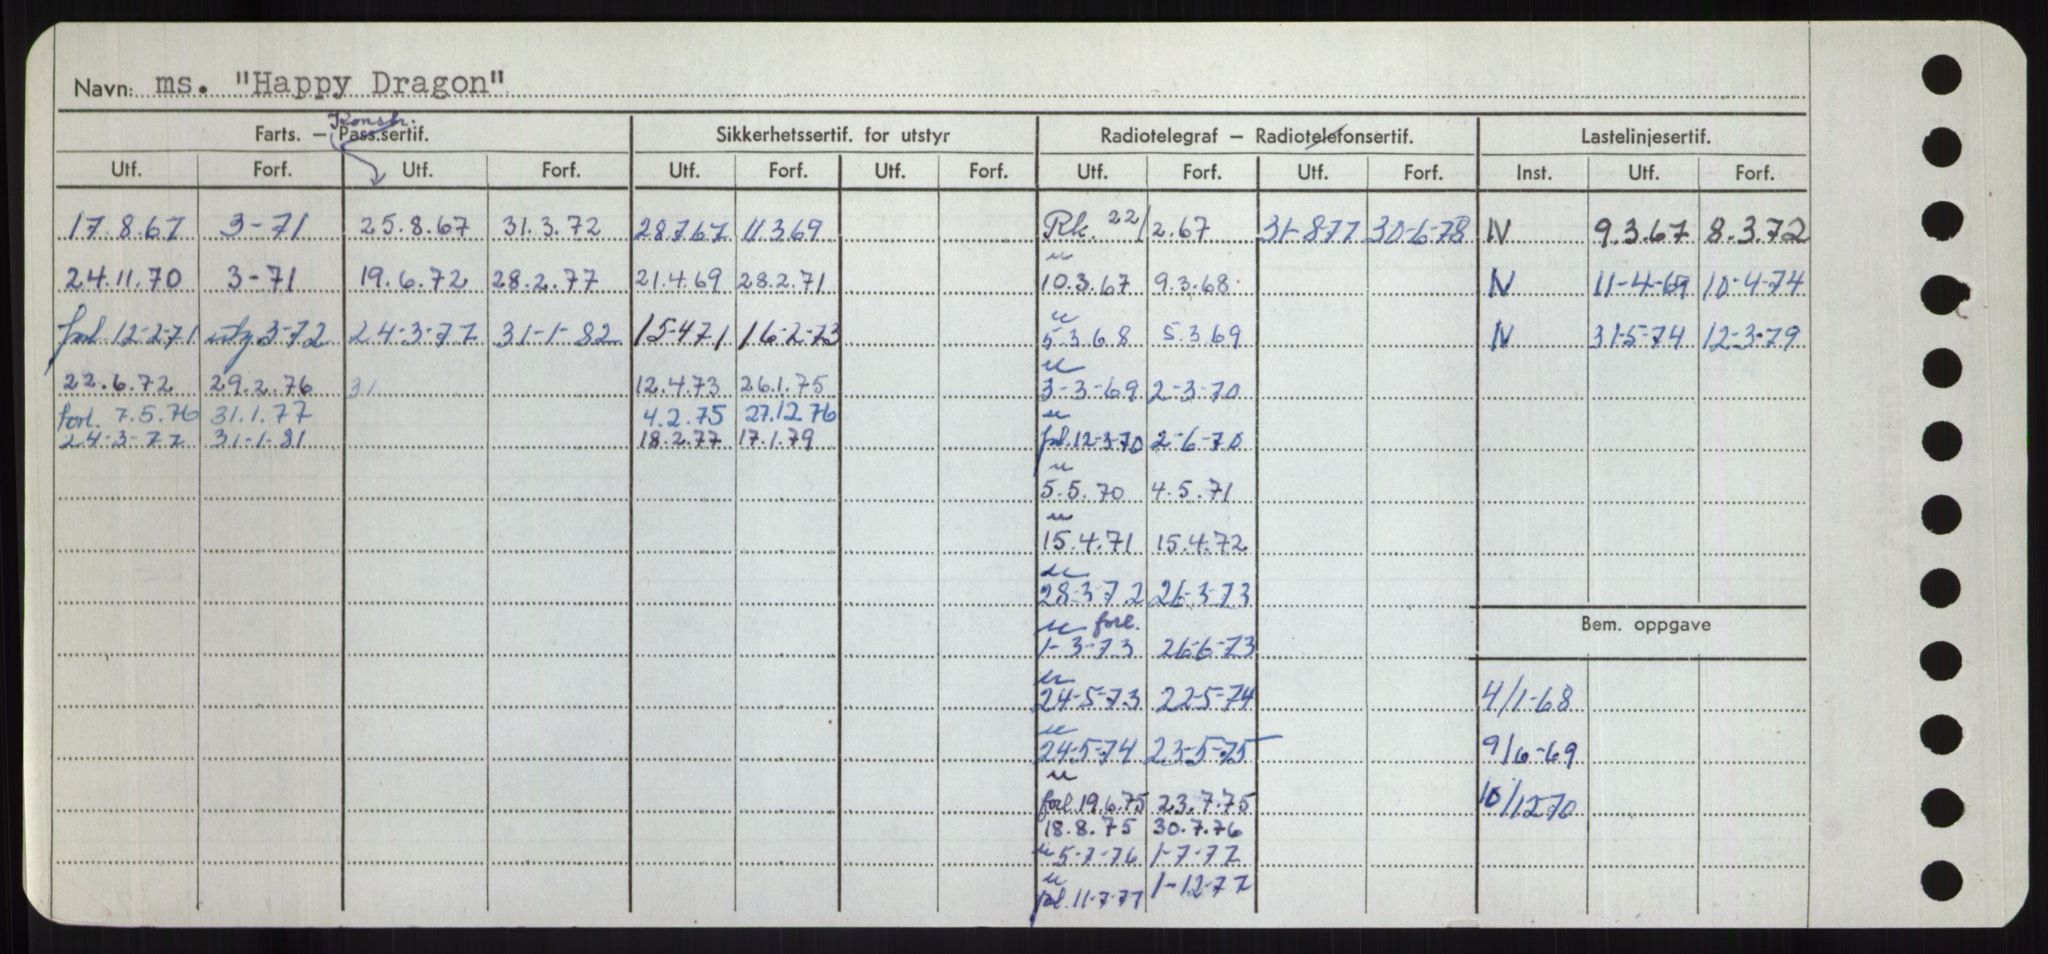 Navn: ms. "Happy Dragon"
Konstr.
Farts. — Pass.sertif. Sikkerhetssertif. for utstyr Radiotelegraf — Radiotelefonsertif. Lastelinjesertif.
Utf. Forf. Utf. Forf. Utf. Forf. Utf. Forf. Utf. Forf. Utf. Forf. Inst. Utf. Forf.
17.8.67 3-71 25.8.67 31.3.72 28.7.67 11.3.69 Rk. 22/2.67 31-8-77 30-6-78 N 9.3.67 8.3.72
"
24.11.70 3-71 19.6.72 28.2.77 21.4.69 28.2.71 10.3.67 9.3.68 N 11-4-69 10-4-74
"
forl. 12-2-71 3-72 24-3-77 31-1-82 15-4-71 16-2-73 5.3.68 5.3.69 N 31-5-74 12-3-79
"
22.6.72 29.2.76 31 12.4.73 26.1.75 3-3-69 2-3-70
forl. 7.5.76 31.1.77 4.2.75 27.12.76 "
24-3-77 31-1-81 18.2.77 17.1.79 forl. 12-3-70 2-6-70
"
5.5.70 4.5.71
"
15.4.71 15.4.72
"
28-3-72 26-3-73
" forl. Bem. oppgave
1-3-73 26-6-73
"
24-5-73 22-5-74 4/1-68
"
24-5-74 23-5-75 9/6-69
"
forl. 19.6.75 23.7.75 10/12-70
18.8.75 30.7.76
" 5-7-76 1-7-77
"
forl. 11-7-77 1-12-77